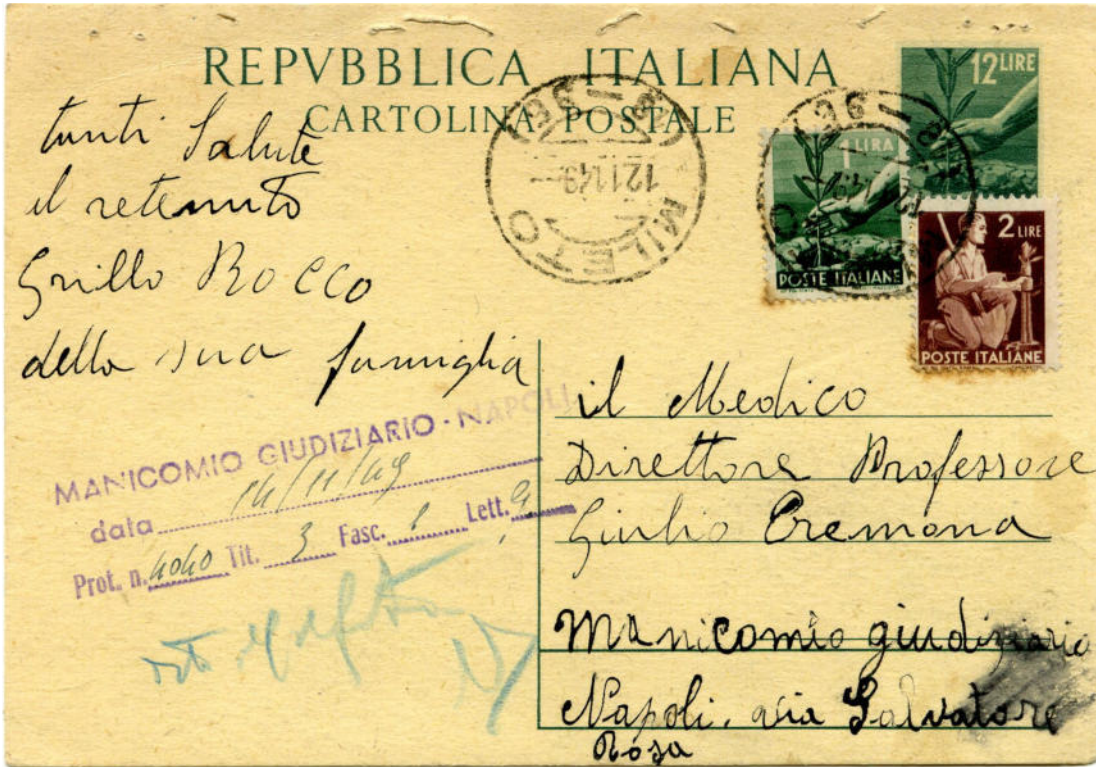 REPVBBLICA ITALIANA
CARTOLINA POSTALE
12 LIRE
1 LIRA
POSTE ITALIANE
2 LIRE
POSTE ITALIANE
MILETO
12.11.49
tanti Saluti
il retenuto
Grillo Rocco
della sua famiglia
MANICOMIO GIUDIZIARIO - NAPOLI
data 14/11/49
Prot. n. 4040 Tit. 3 Fasc. Lett.
il Medico
Direttore Professore
Giulio Cremona
Manicomio giudiziario
Napoli. via Salvatore
Rosa